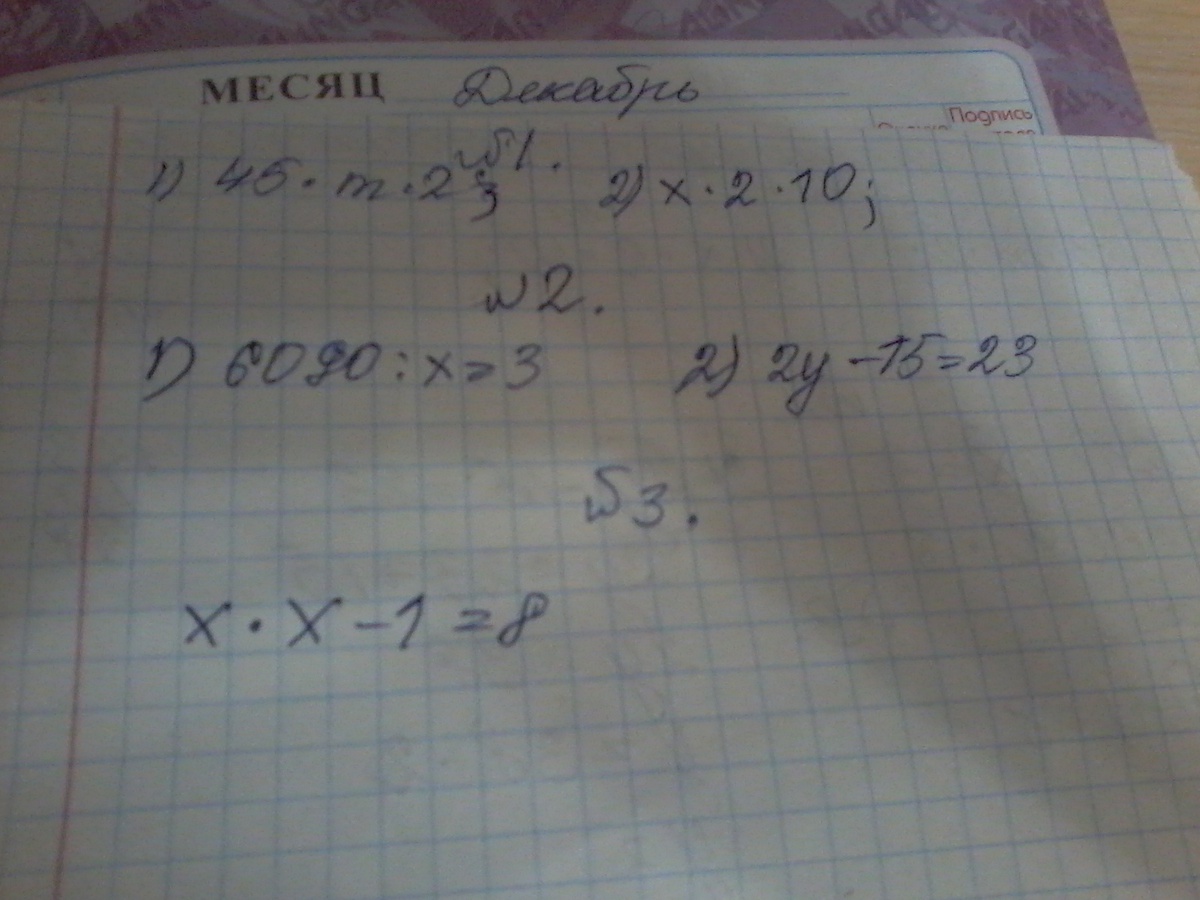 МЕСЯЦ Декабрь
Подпись
№1.
1) 45 · m · 2; 2) x · 2 · 10;
№2.
1) 6090 : x = 3 2) 2y - 15 = 23
№3.
x · x - 1 = 8